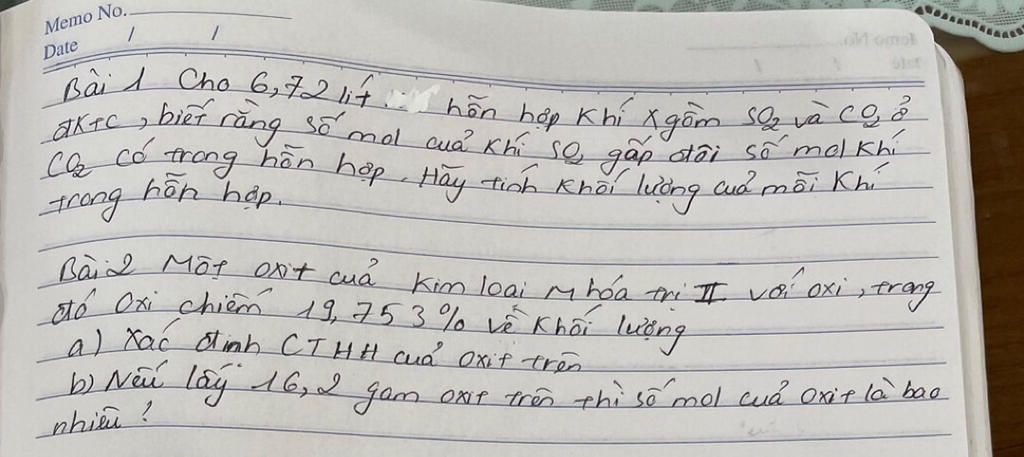 Memo No.
Date / /
Bài 1 Cho 6,72 lít hỗn hợp khí X gồm SO2 và CO2 ở
đktc, biết rằng số mol của khí SO2 gấp đôi số mol khí
CO2 có trong hỗn hợp. Hãy tính khối lượng của mỗi khí
trong hỗn hợp.
Bài 2 Một oxit của kim loại M hóa trị II với oxi, trong
đó oxi chiếm 19,753% về khối lượng
a) Xác định CTHH của oxit trên
b) Nếu lấy 16,2 gam oxit trên thì số mol của oxit là bao
nhiêu?